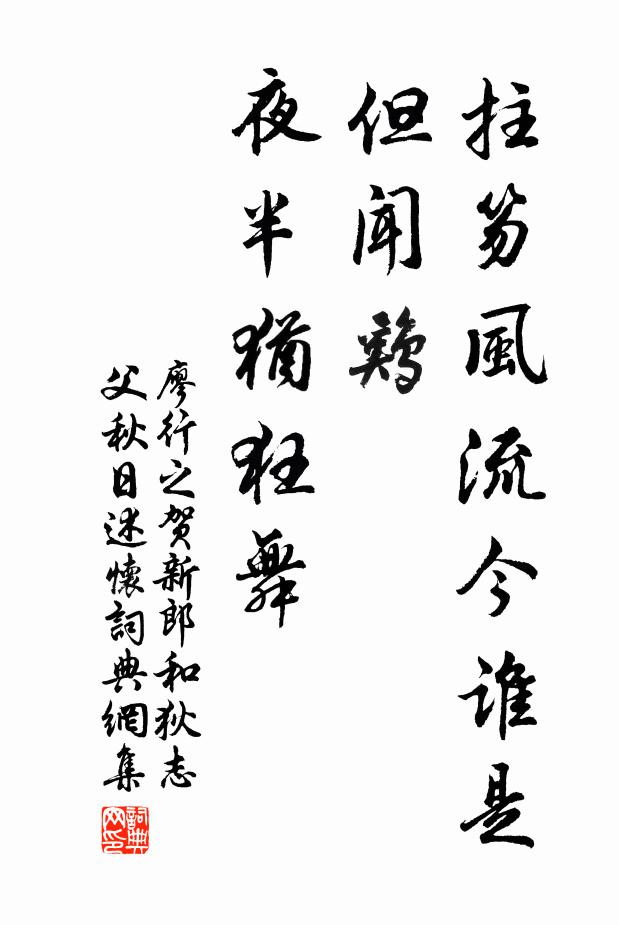 拄笏風流今誰是
但闻鷄
夜半猶狂舞
廖行之贺新郎和狄志
父秋日述懷詞典網集
詞典
网印